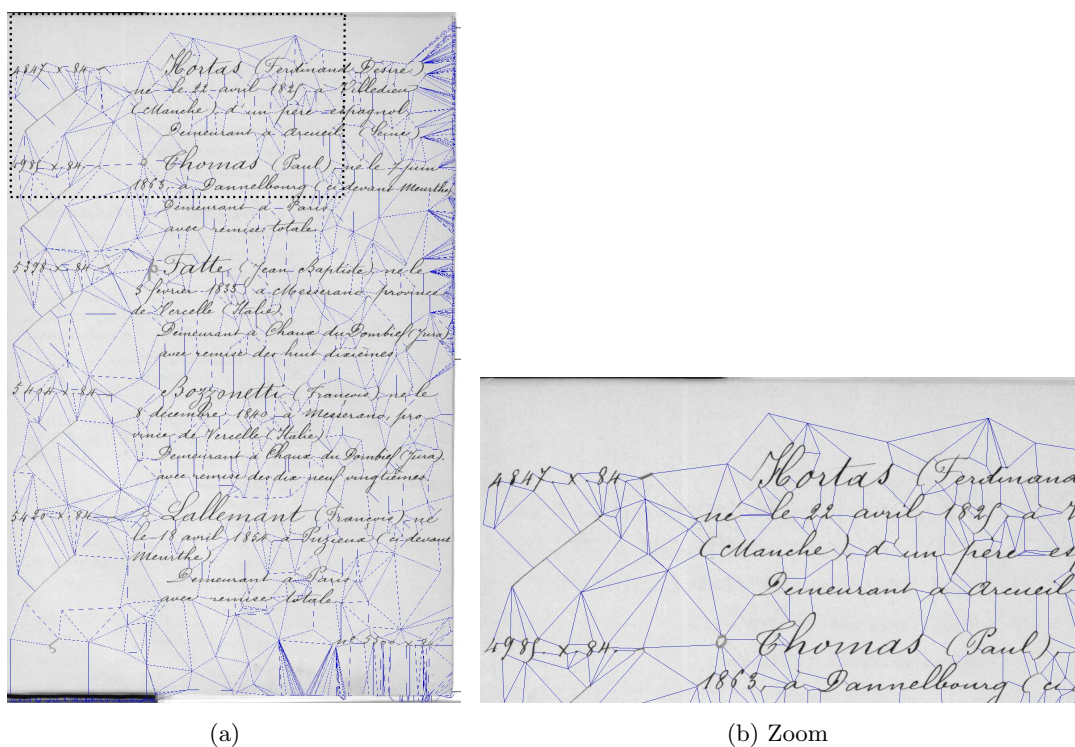 4847 x 84 Hortas (Ferdinand Desiré)
né le 22 avril 1825 à Villedieu
(Manche) d'un père espagnol,
Demeurant à Arcueil (Seine)
4985 x 84 Thomas (Paul), né le 7 juin
1863, à Dannelbourg (ci devant Meurthe)
Demeurant à Paris.
avec remise totale.
5398 x 84 Fatte (Jean Baptiste) né le
5 février 1835, à Messerano, province
de Vercelle (Italie)
Demeurant à Chaux du Dombief (Jura)
avec remise des huit dixièmes.
5404 x 84 Bozzonetti (François) né le
8 décembre 1840 à Messerano, pro
vince de Vercelle (Italie)
Demeurant à Chaux du Dombief (Jura).
avec remise des dix neuf vingtièmes.
5420 x 84 Lallemant (François) né
le 18 avril 1854 à Puzieux (ci devant
Meurthe)
Demeurant à Paris.
avec remise totale.
(a)
4847 x 84 Hortas (Ferdinand
né le 22 avril 1825, à
(Manche) d'un père esp
Demeurant à Arcueil
4985 x 84 Thomas (Paul),
1863, à Dannelbourg (ci
(b) Zoom